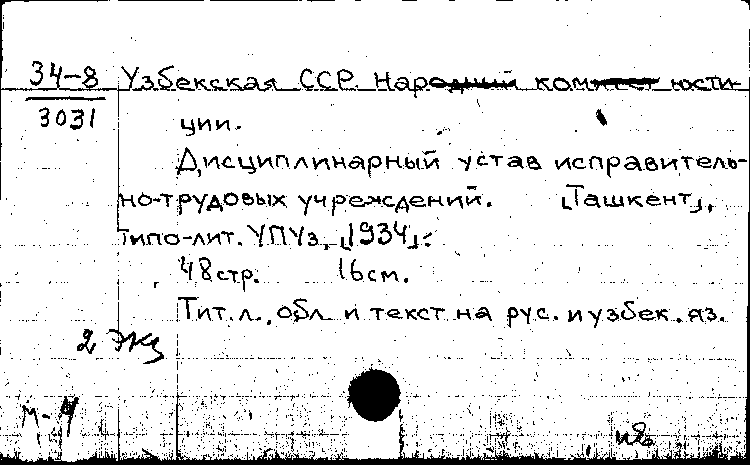 34-8 Узбекская ССР. Народный комитет юсти-
3031
ции.
Дисциплинарный устав исправитель-
но-трудовых учреждений. [Ташкент],
типо-лит. УПУз, [1934].
48стр. 16см.
Тит.л., обл и текст на рус. и узбек. яз.
2 экз